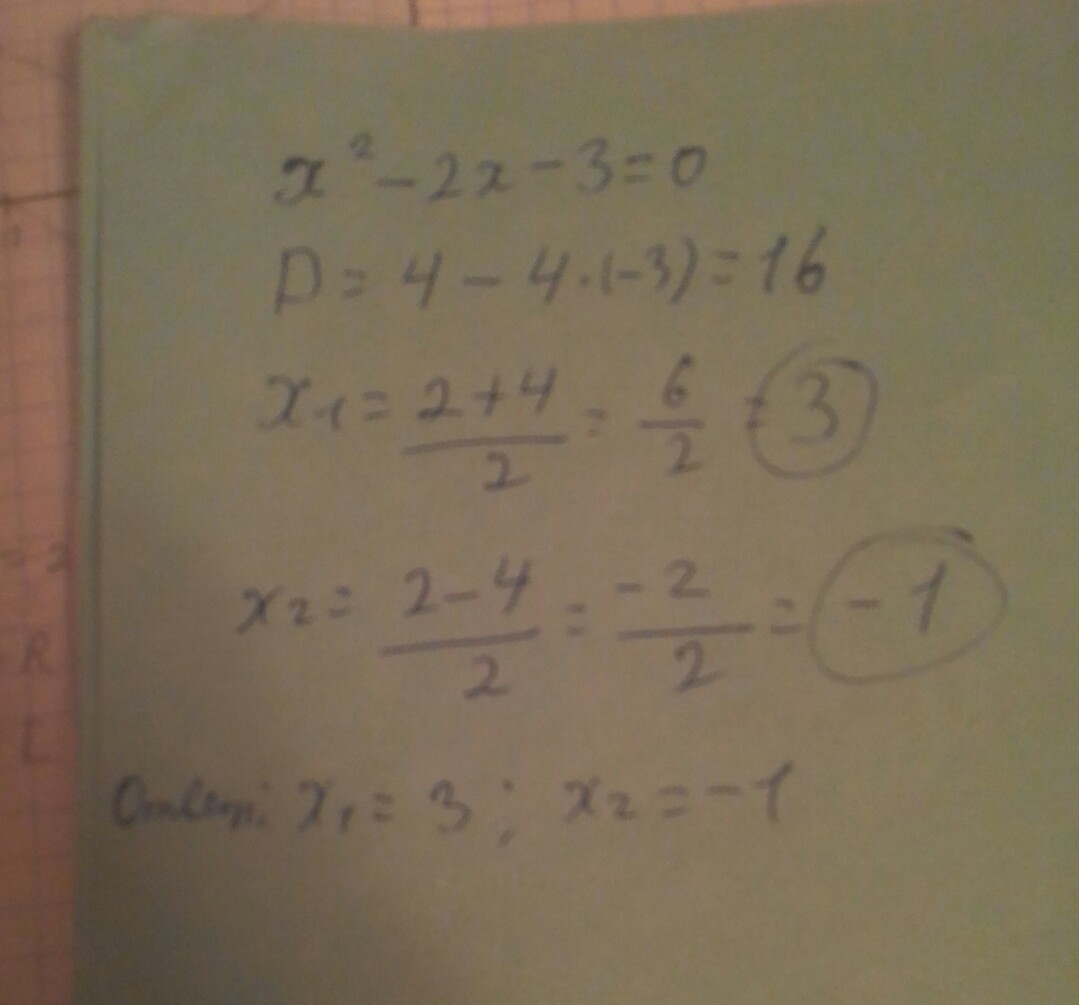 x² - 2x - 3 = 0
D = 4 - 4·(-3) = 16
x₁ = (2+4)/2 = 6/2 = 3
x₂ = (2-4)/2 = -2/2 = -1
Ответ: x₁ = 3; x₂ = -1
= 2
R
L